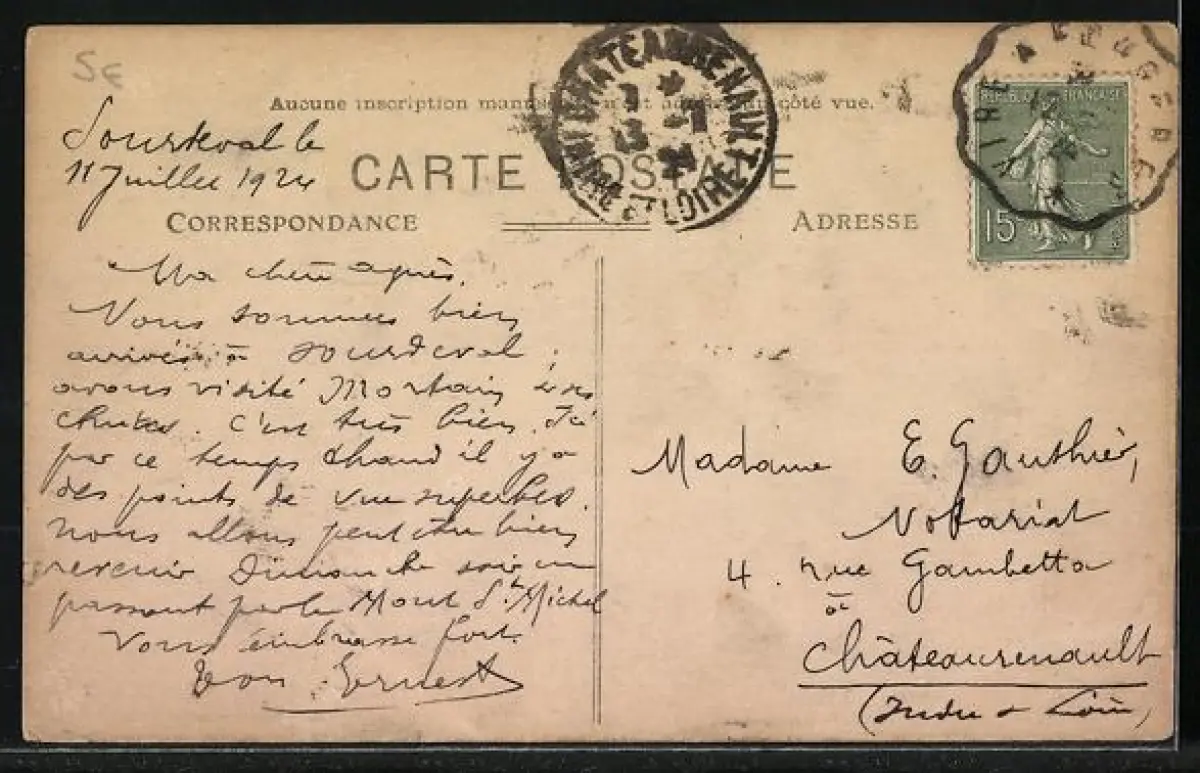 5€
Aucune inscription manuscrite n'est admise du côté vue.
CHATEAURENAULT
13 -7
24
INDRE ET LOIRE
VIRE A FOUGERES
REPUBLIQUE FRANÇAISE
15
Sourdeval le
11 Juillet 1924
CARTE POSTALE
CORRESPONDANCE
ADRESSE
Ma chère
Vous sommes bien
arrivés à Sourdeval ;
avons visité Mortain & ses
chutes. C'est très bien.
par ce temps chaud il y a
des points de vue superbes.
nous allons peut être bien
revenir Dimanche soir en
passant par le Mont St. Michel
Vous embrasse fort.
Ton Ernest
Madame E. Gauthier,
Notariat
4. rue Gambetta
à
Châteaurenault
(Indre & Loire)